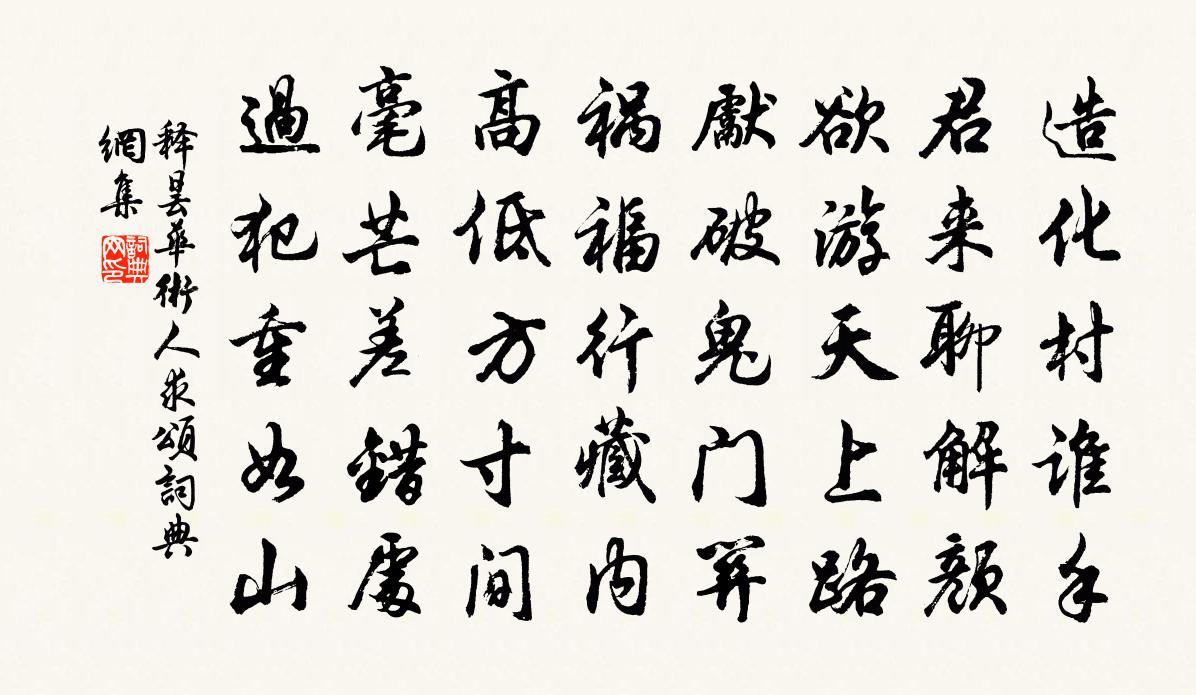 造化村谁手
君来聊解颜
欲游天上路
獻破鬼门關
祸福行藏内
高低方寸间
毫芒差錯處
過犯重如山
释曇華術人求頌詞典
網集
詞典网印